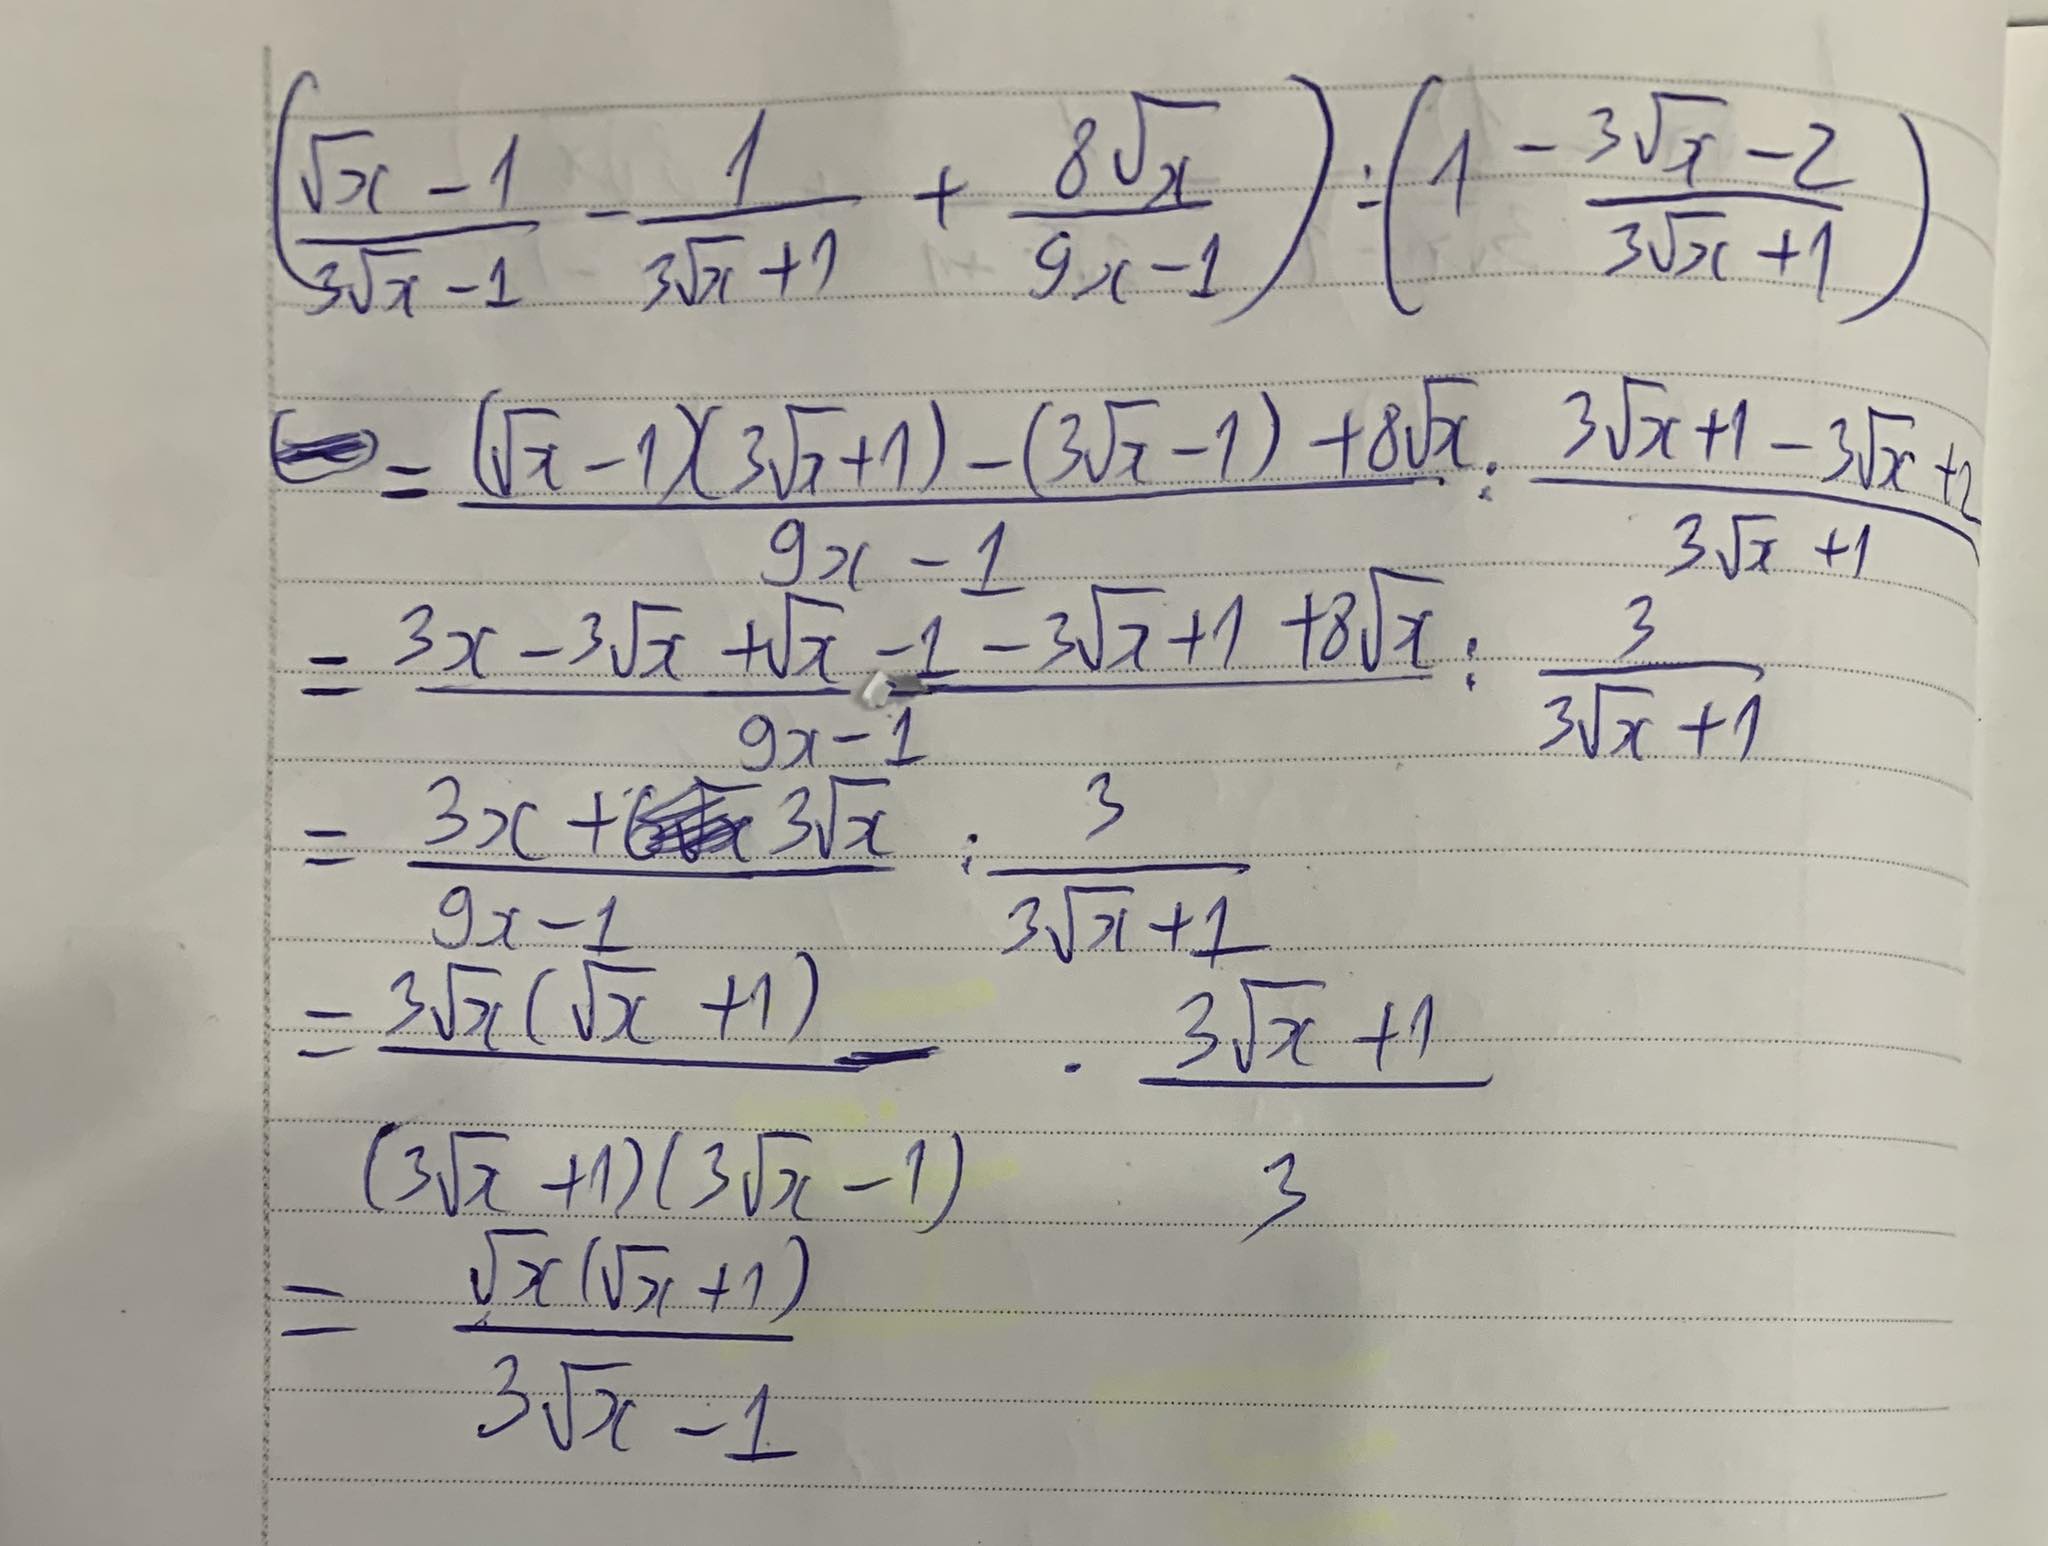 (√x - 1 / 3√x - 1 - 1 / 3√x + 1 + 8√x / 9x - 1) : (1 - 3√x - 2 / 3√x + 1)
= (√x - 1)(3√x + 1) - (3√x - 1) + 8√x / 9x - 1 : 3√x + 1 - 3√x + 2 / 3√x + 1
= 3x - 3√x + √x - 1 - 3√x + 1 + 8√x / 9x - 1 : 3 / 3√x + 1
= 3x + 3√x / 9x - 1 : 3 / 3√x + 1
= 3√x (√x + 1) / (3√x + 1)(3√x - 1) . 3√x + 1 / 3
= √x (√x + 1) / 3√x - 1